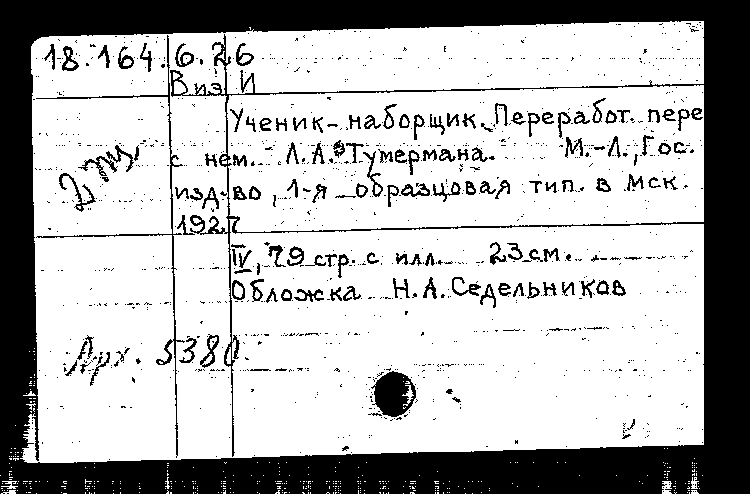 18.164.6.26
Виз И
Ученик-наборщик. Переработ. пере
с нем. Л.А. Тумермана. М.-Л., Гос.
изд-во, 1-я образцовая тип. в мск.
1927
IV, 79 стр. с илл. 23 см.
Обложка Н.А. Седельников
Арх. 5380.